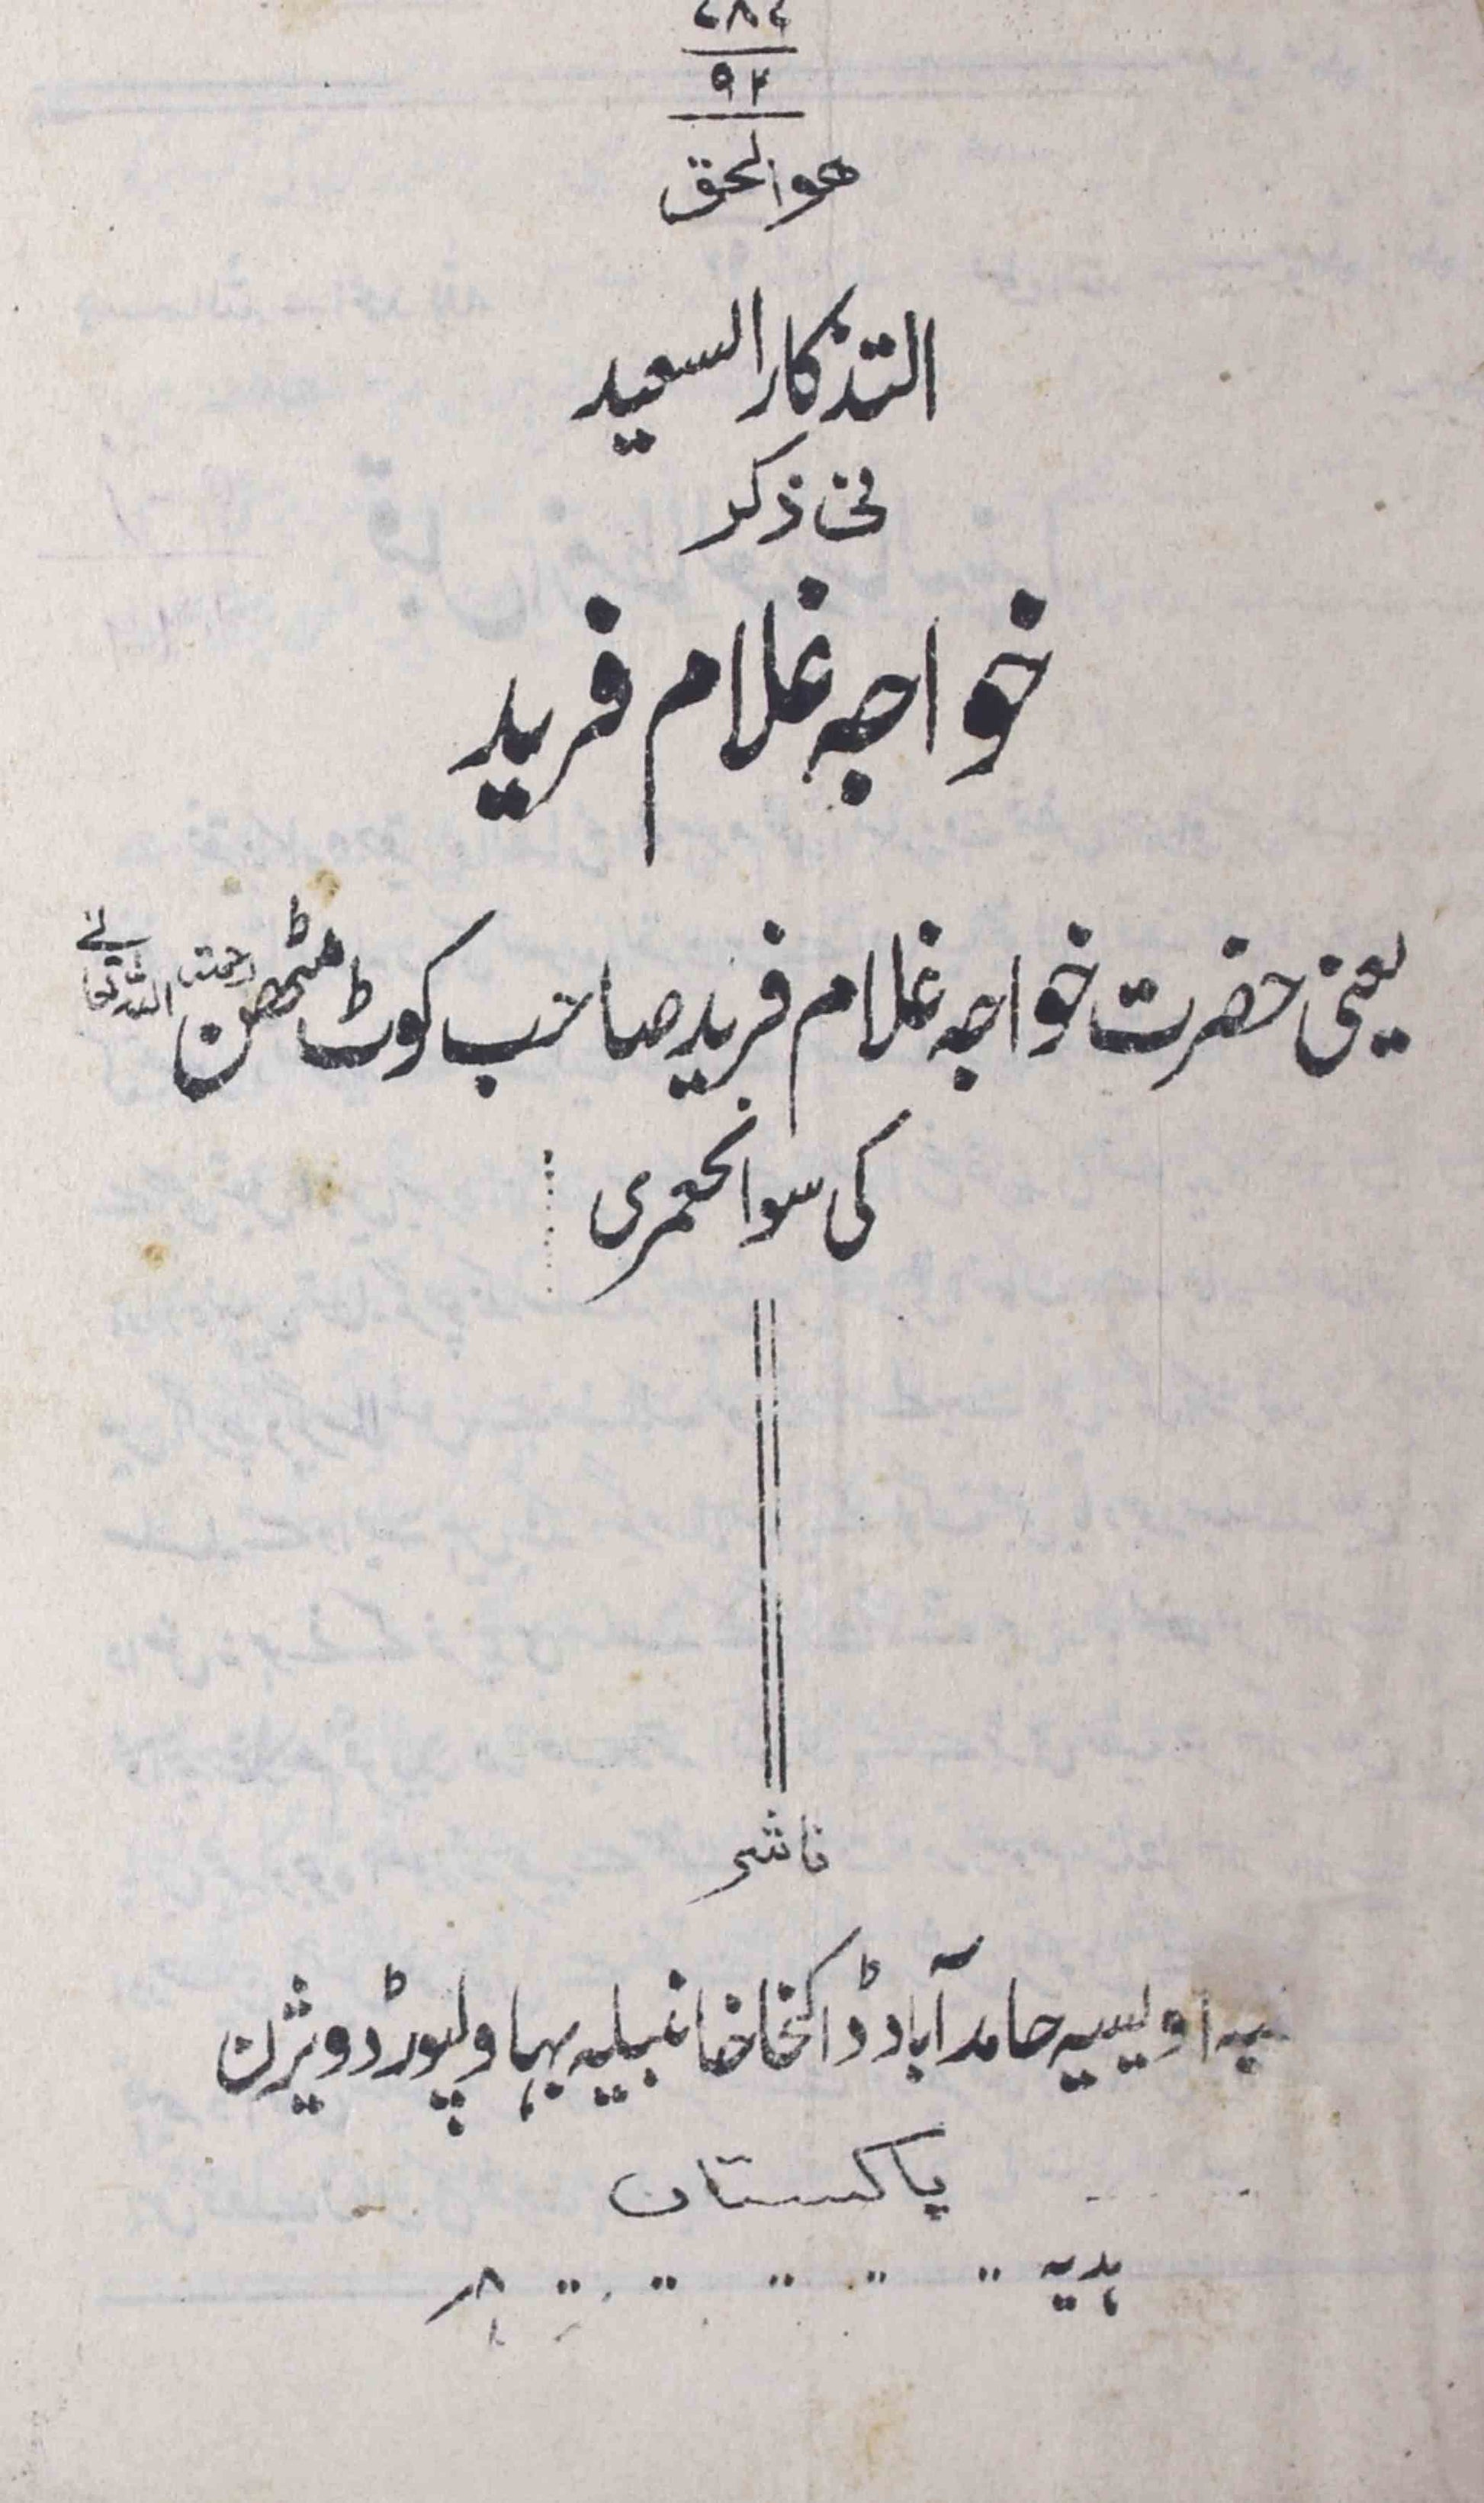 ۷۸۶
۹۲
ھوالحق
التذکار السعید
فی ذکر
خواجہ غلام فرید
یعنی حضرت خواجہ غلام فرید صاحب کوٹ مٹھن رحمتہ اللہ تعالےٰ
کی سوانحعمری
ناشر
اویسیہ حامد آباد ڈاکخانہ خانبیلہ بہاولپور ڈویژن
پاکستان
ہدیہ ۸؍